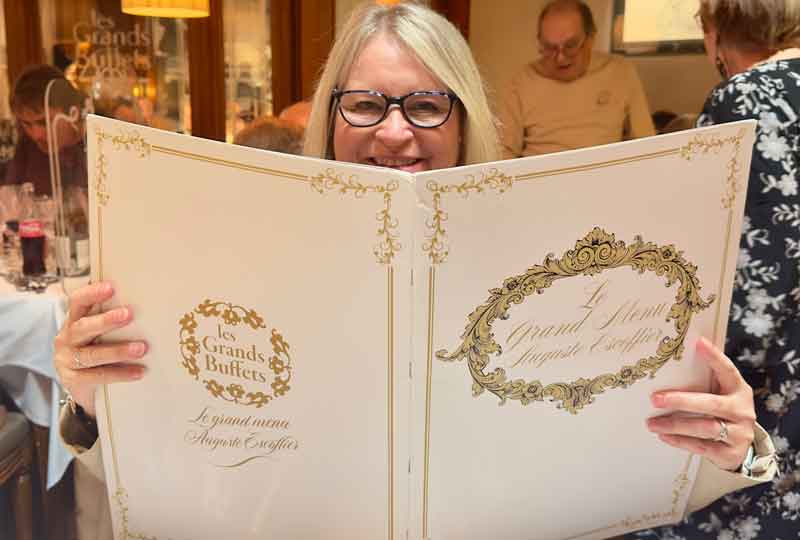 les
Grands
Buffets
les
Grands
Buffets
Le grand menu
Auguste Escoffier
Le
Grand Menu
Auguste Escoffier